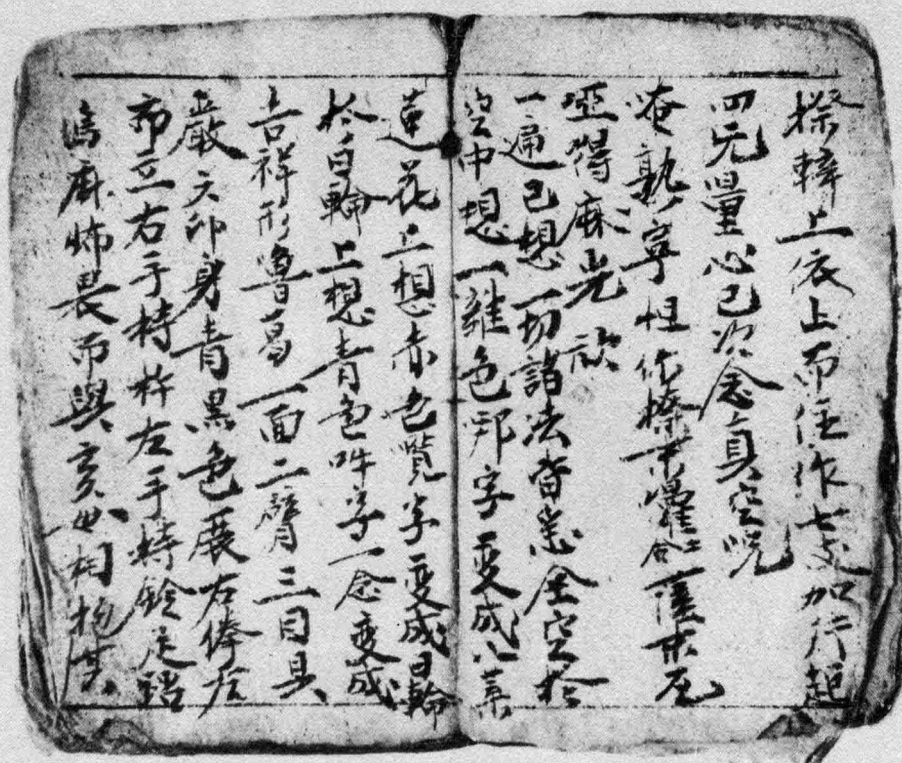 上依上而住作七支加行起
四无量心已次念真空咒
唵熟寧怛捺末二合薩末
啞得麻光
一遍已想一切諸法皆悉全空於
空中想一雜色字变成八葉
蓮花上想赤色覽字变成日輪
於日輪上想青色吽字一念变成
吉祥形魯葛一面二臂三目具
嚴六印身青黑色展右拳左
而立右手持杵左手持鈴足踏
麻怖畏而與亥母相抱其